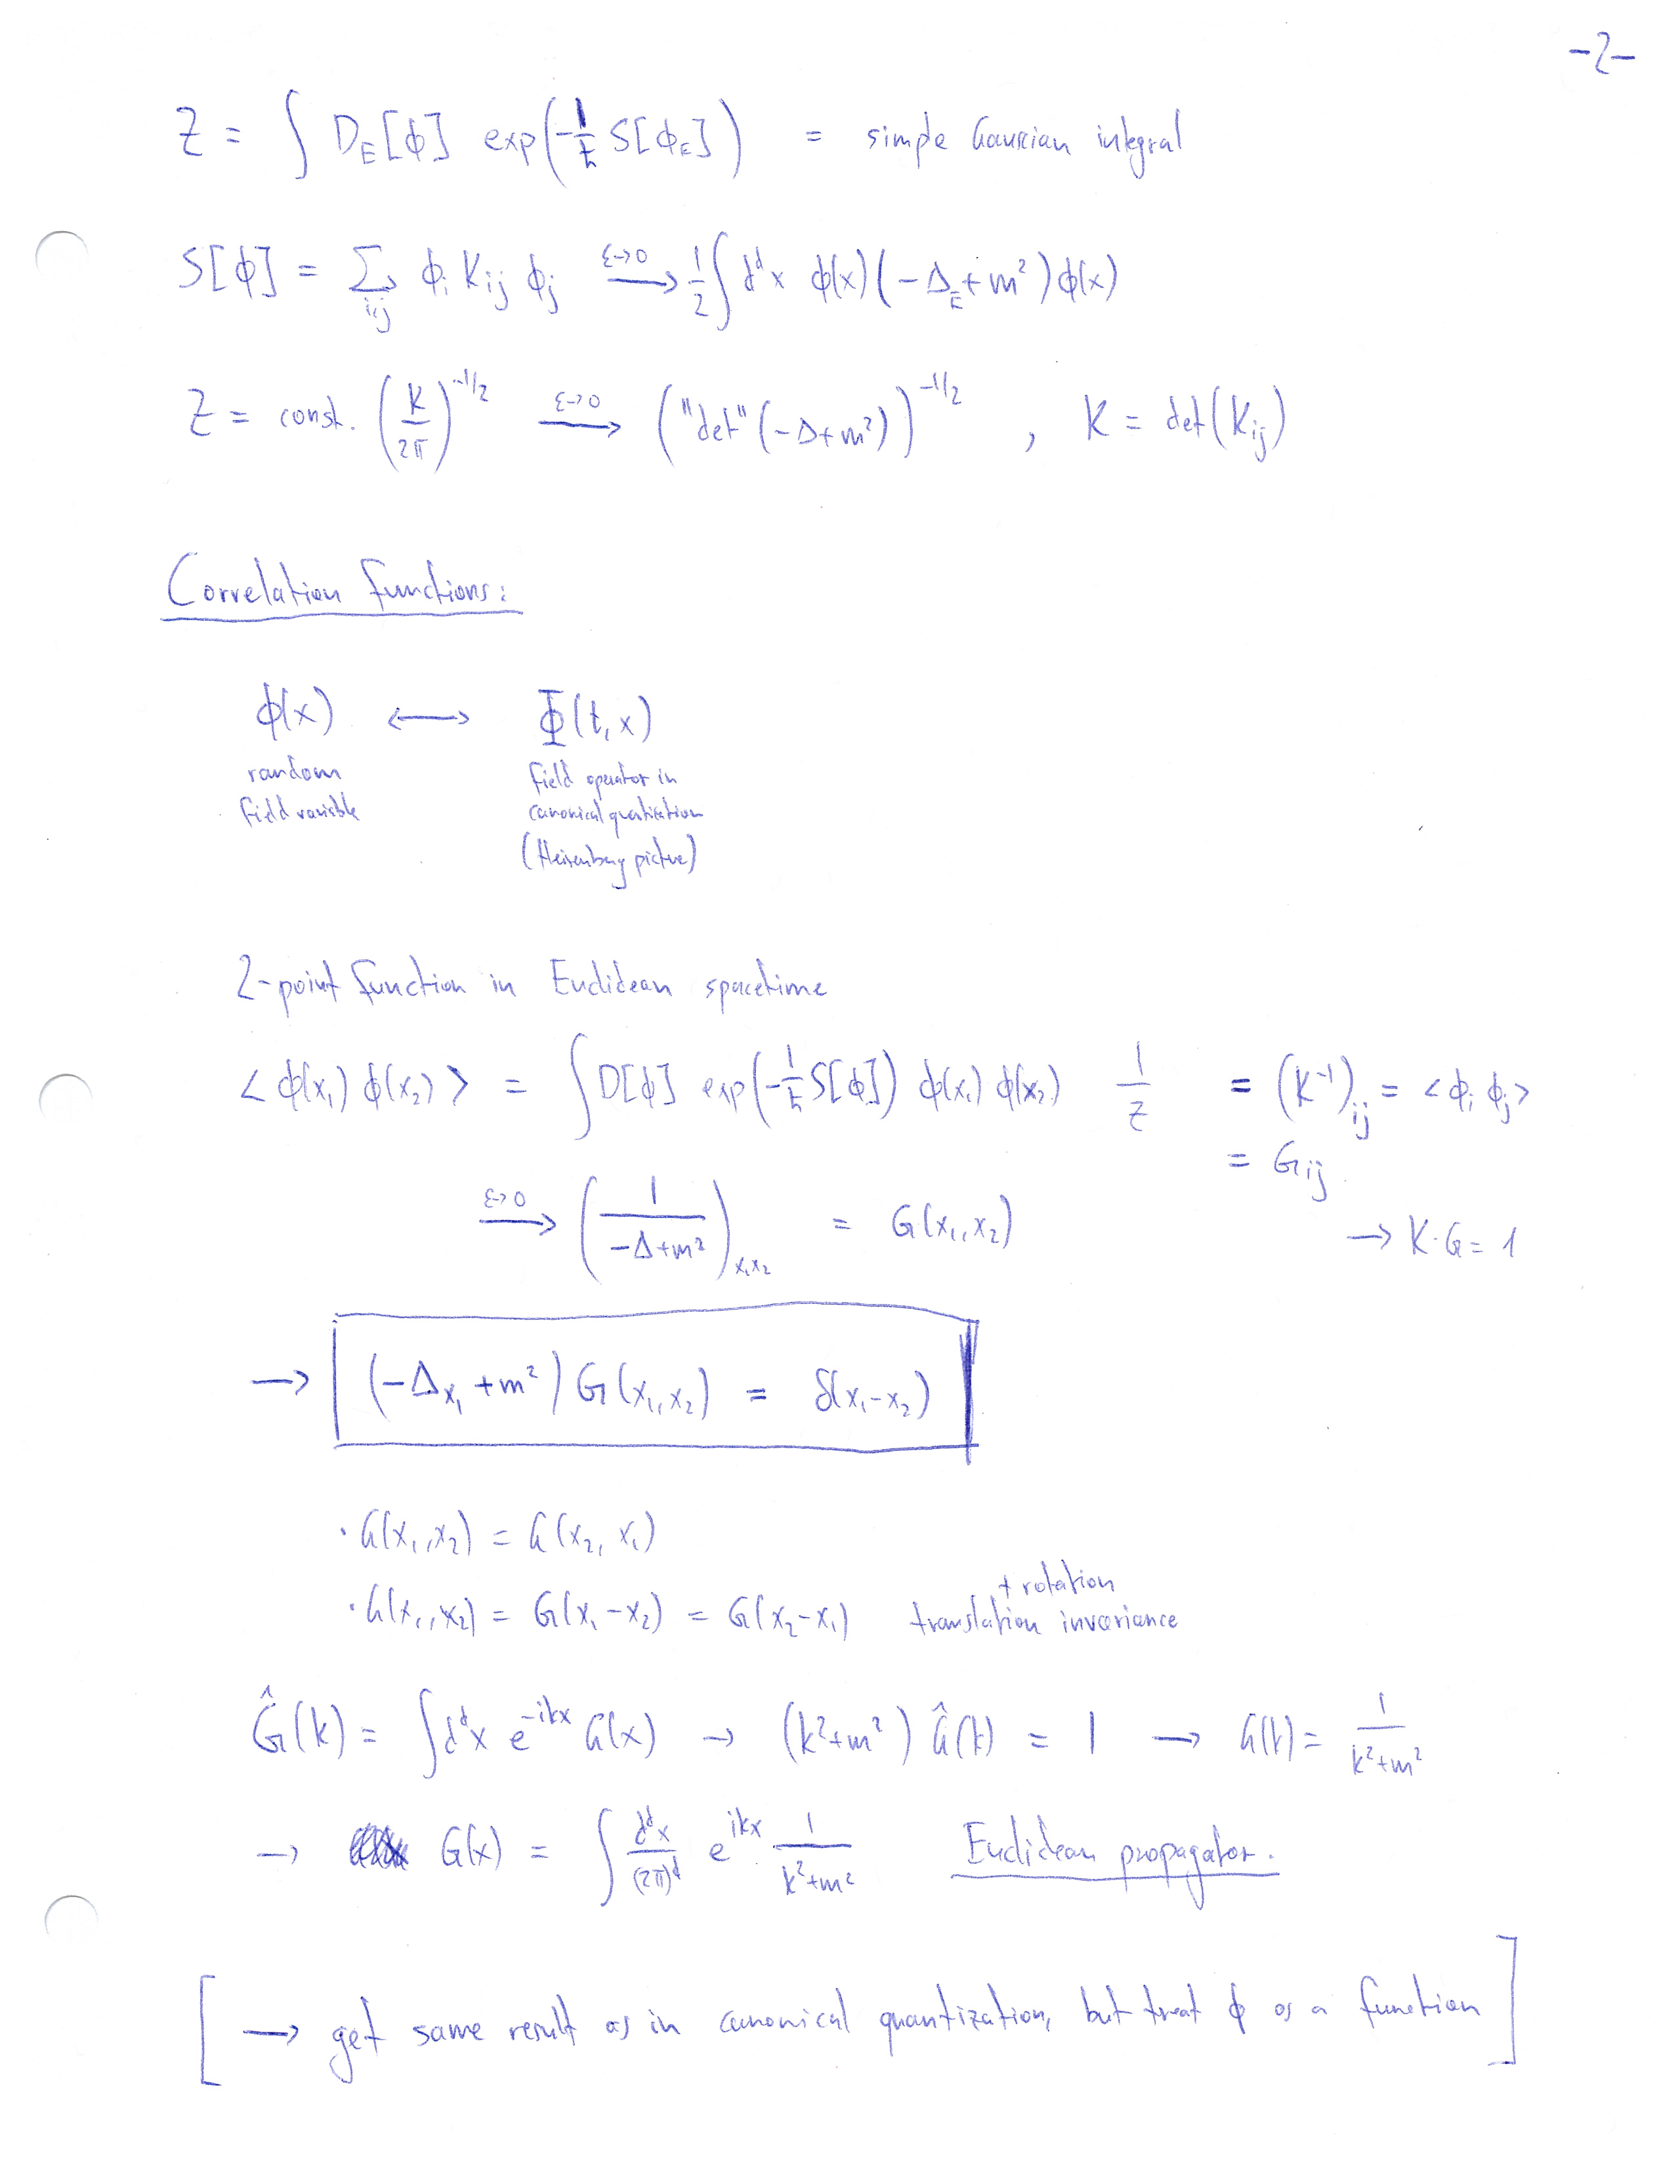 -2-
Z = ∫ D_E[ϕ] exp(-1/ħ S[ϕ_E]) = simple Gaussian integral
S[ϕ] = Σ_{i,j} ϕ_i K_ij ϕ_j —ε→0→ 1/2 ∫ d^d x ϕ(x)(-Δ_E + m²)ϕ(x)
Z = const. (K/2π)^{-1/2} —ε→0→ ("det"(-Δ+m²))^{-1/2} , K = det(K_ij)
Correlation functions:
ϕ(x) ⟷ Φ(t,x)
random field operator in
field variable canonical quantization
(Heisenberg picture)
2-point function in Euclidean spacetime
<ϕ(x₁) ϕ(x₂)> = ∫ D[ϕ] exp(-1/ħ S[ϕ]) ϕ(x₁) ϕ(x₂) 1/Z = (K⁻¹)_ij = <ϕ_i ϕ_j>
= G_ij
—ε→0→ (1/(-Δ+m²))_{x₁x₂} = G(x₁,x₂) → K·G = 1
→ (-Δ_{x₁} + m²) G(x₁,x₂) = δ(x₁-x₂)
· G(x₁,x₂) = G(x₂,x₁)
+ rotation
· G(x₁,x₂) = G(x₁-x₂) = G(x₂-x₁) translation invariance
Ĝ(k) = ∫ d^d x e^{-ikx} G(x) → (k²+m²) Ĝ(k) = 1 → G(k) = 1/(k²+m²)
→ G(x) = ∫ d^d x/(2π)^d e^{ikx} 1/(k²+m²) Euclidean propagator.
[ → get same result as in canonical quantization, but treat ϕ as a function ]